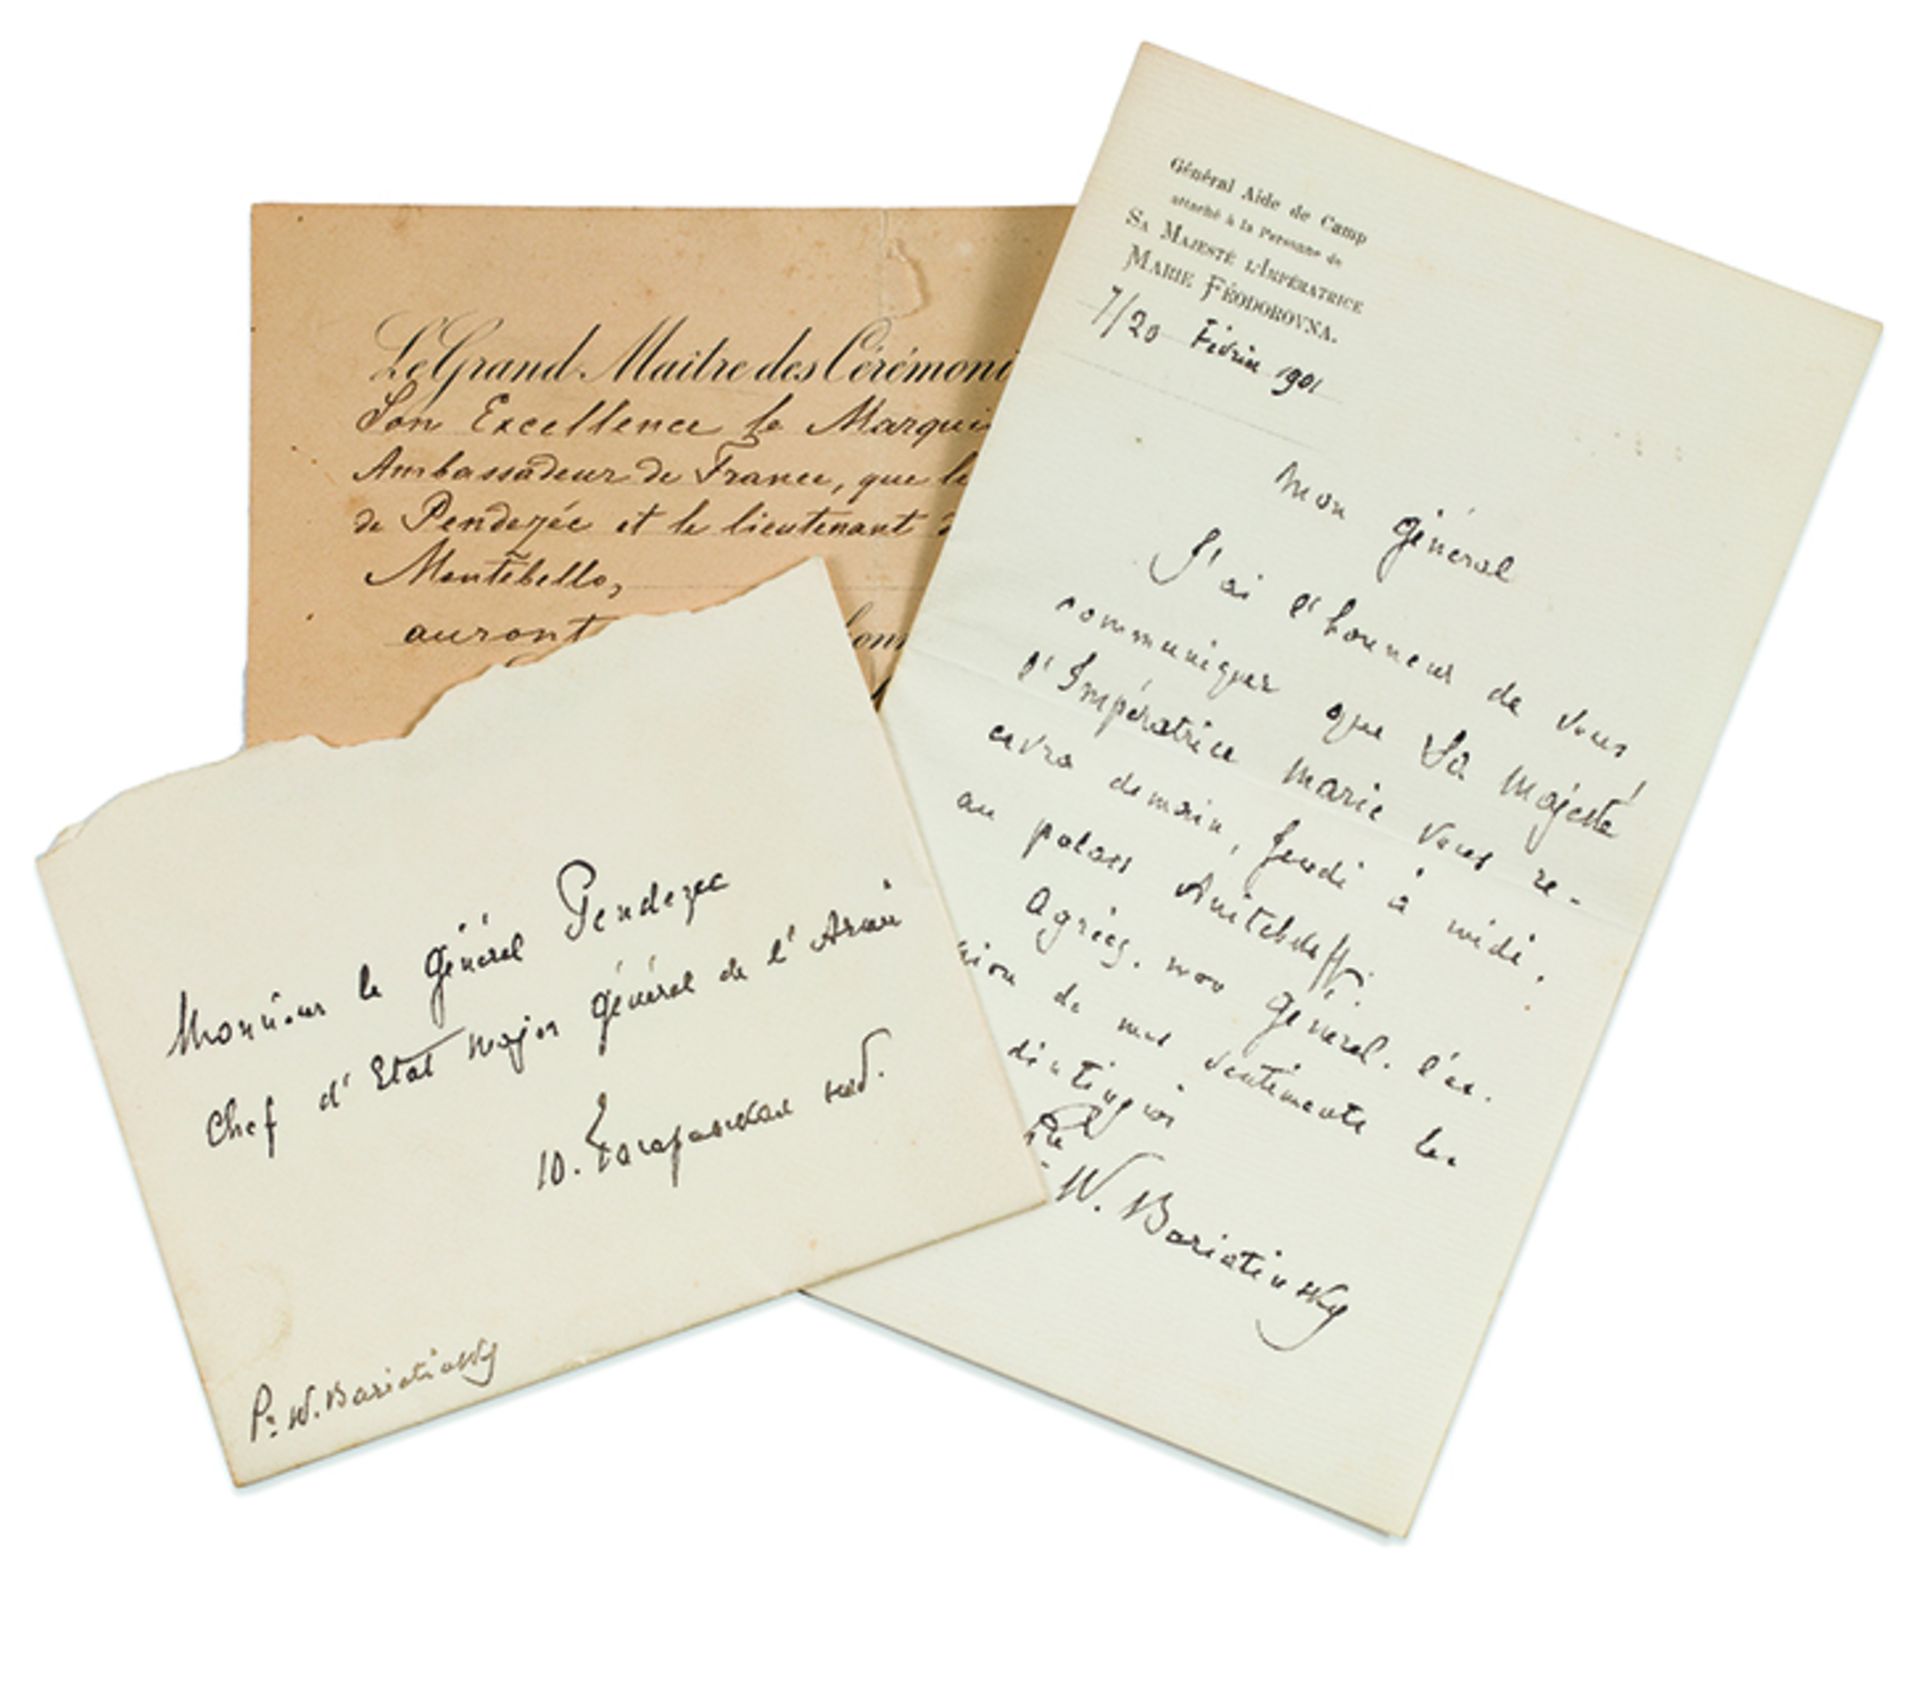 Le Grand Maître des Cérémoni
Son Excellence le Marqui
Ambassadeur de France, que le
de Pendezée et le lieutenant d
Montébello,
auront
Général Aide de Camp
attaché à la Personne de
SA MAJESTÉ L'IMPÉRATRICE
MARIE FÉODOROVNA.
7/20 Février 1901
Mon général
J'ai l'honneur de vous
communiquer que Sa Majesté
l'Impératrice Marie vous re-
cevra demain, Jeudi à midi.
au palais Anitchkoff.
Agréez, mon Général. l'ex.
sion de mes sentiments les
distingués
W. Bariatinsky
Monsieur le Général Pendezec
Chef d'Etat Major Général de l'Armée
10.
Pce W. Bariatinsky